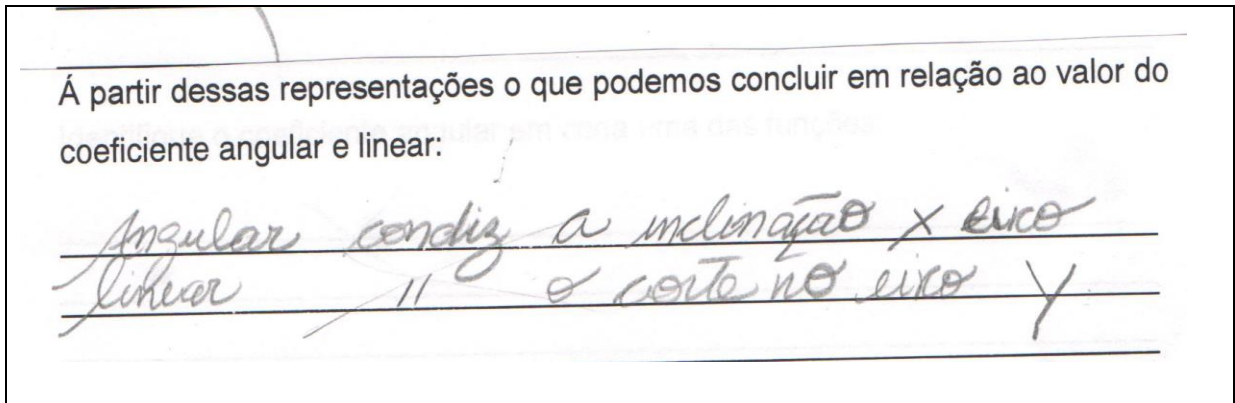 Á partir dessas representações o que podemos concluir em relação ao valor do
coeficiente angular e linear:
Angular condiz a inclinação x eixo
linear " o corte no eixo y